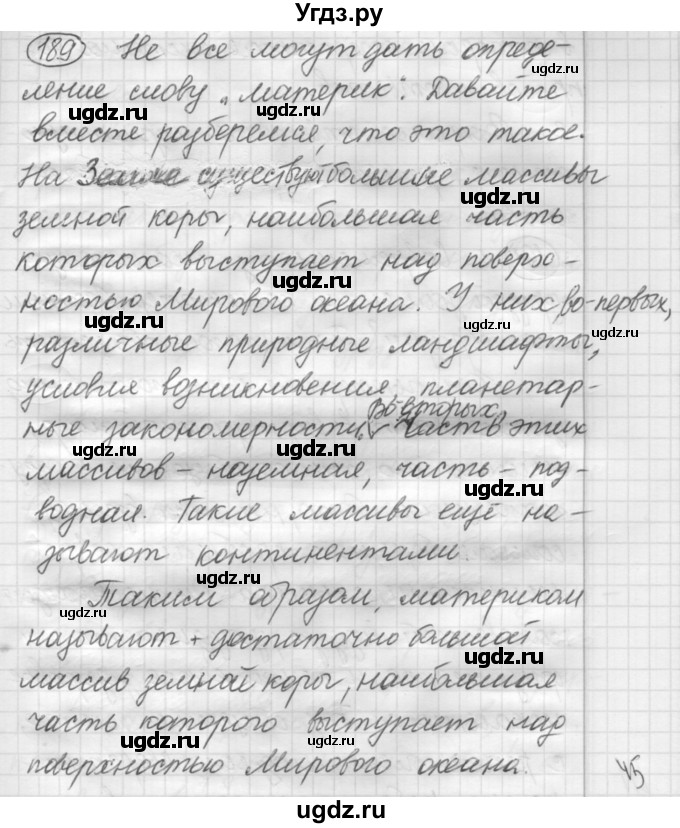 Угдз.ру
189 Не все могут дать опреде-
ление слову „материк". Давайте
ugdz.ru ugdz.ru
вместе разберемся, что это такое.
ugdz.ru ugdz.ru
На Земле существуют большие массивы
земной коры, наибольшая часть
ugdz.ru
которых выступает над поверх-
ugdz.ru
ностью Мирового океана. У них во-первых,
ugdz.ru
различные природные ландшафты,
условия возникновения, планетар-
во-вторых,
ные закономерности. Часть этих
массивов - наземная, часть - под-
ugdz.ru
водная. Такие массивы ещё на-
ugdz.ru
зывают континентами.
ugdz.ru
Таким образом, материком
ugdz.ru
называют достаточно большой
ugdz.ru
массив земной коры, наибольшая
часть которого выступает над
ugdz.ru ugdz.ru
поверхностью Мирового океана.
45
ugdz.ru